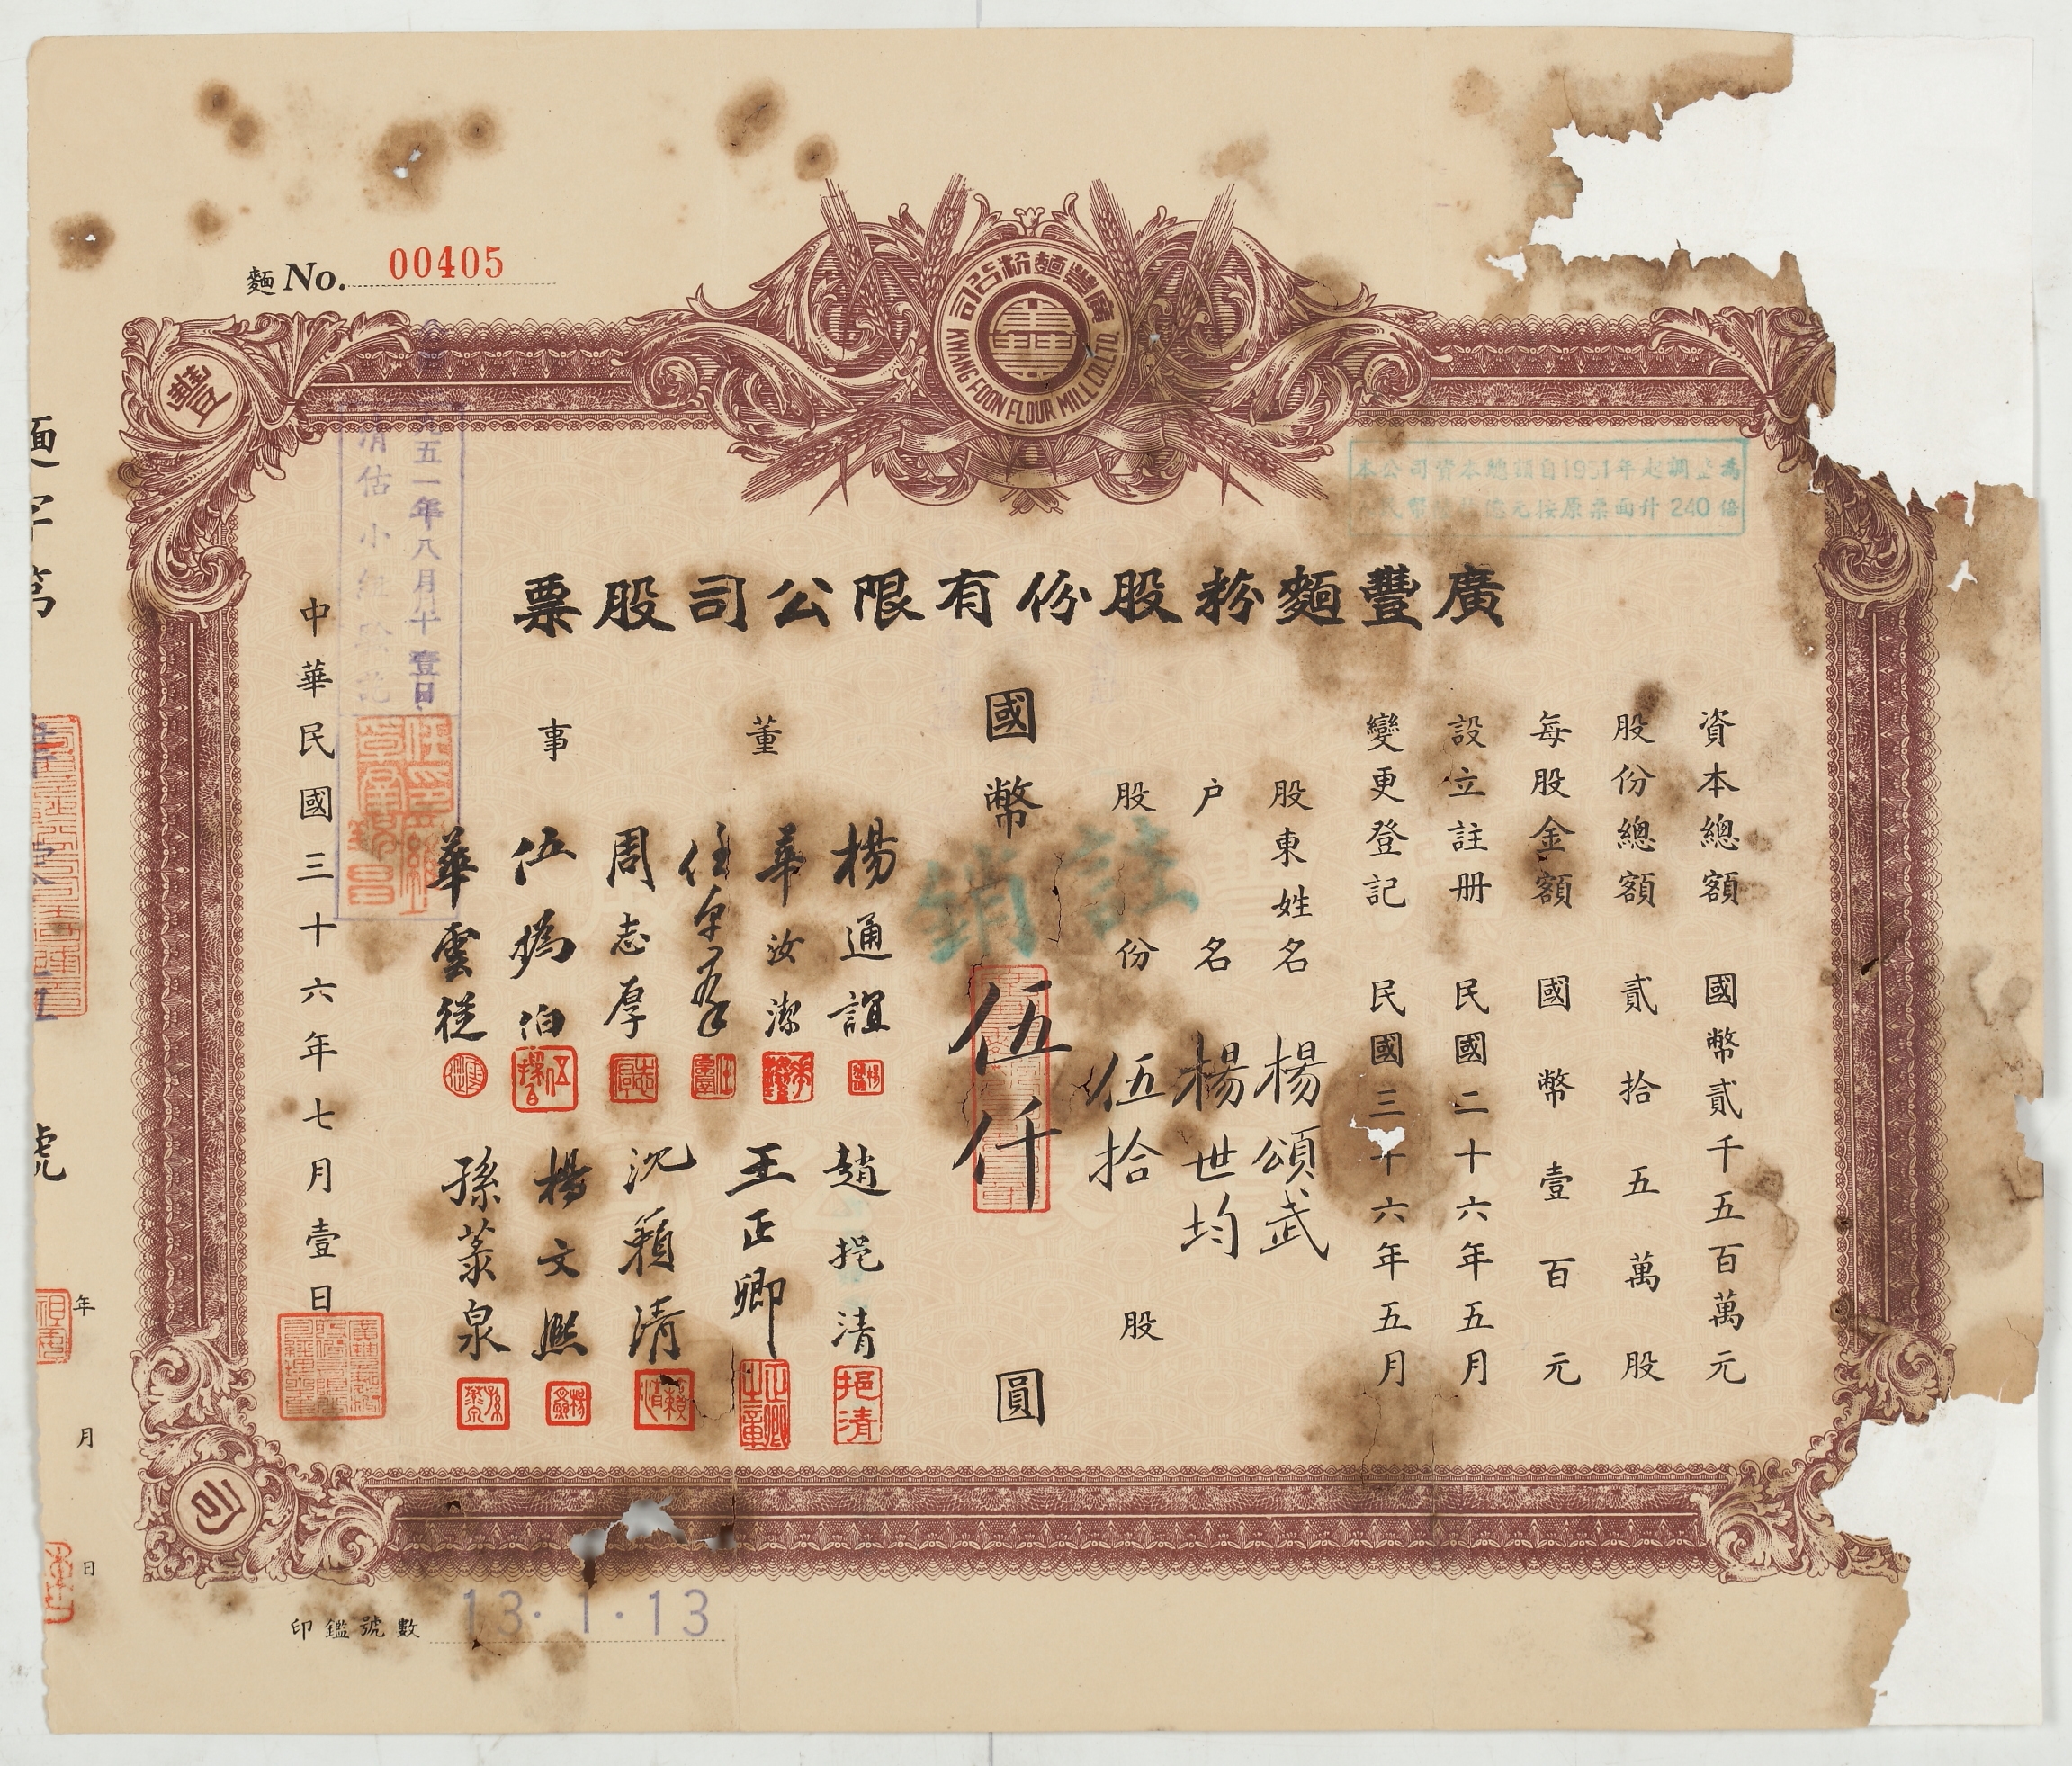 麵 No. 00405
廣豐麵粉公司
KWANG FOON FLOUR MILL CO. LTD.
豐
本公司資本總額自1951年起調正為
億元按原票面升240倍
廣豐麵粉股份有限公司股票
資本總額 國幣貳千五百萬元
股份總額 貳拾五萬股
每股金額 國幣壹百元
設立註册 民國二十六年五月
變更登記 民國三十六年五月
股東姓名 楊頌武
户名 楊世均
股份 伍拾 股
國幣 伍仟 圓
註銷
董事
楊通誼
華汝潔
周志厚
華雲從
趙挹清
王正卿
沈籟清
楊文熙
五一年八月 壹日
清估小組
中華民國三十六年七月壹日
司
印鑑號數 13·1·13
號
年 月 日